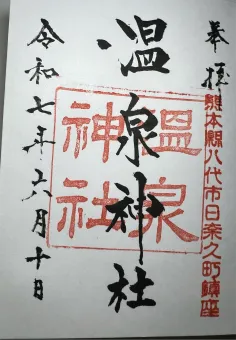 奉拝
熊本県八代市日奈久町鎮座
温泉神社
温泉神社
令和七年六月十日